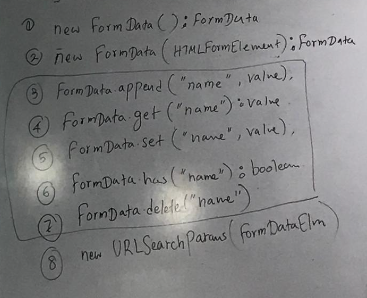 ① new FormData() : FormData
② new FormData(HTMLFormElement) : FormData
③ FormData.append("name", value),
④ FormData.get("name") : value
⑤ FormData.set("name", value),
⑥ formData.has("name") : boolean
⑦ formData.delete("name")
⑧ new URLSearchParams(formDataElm)